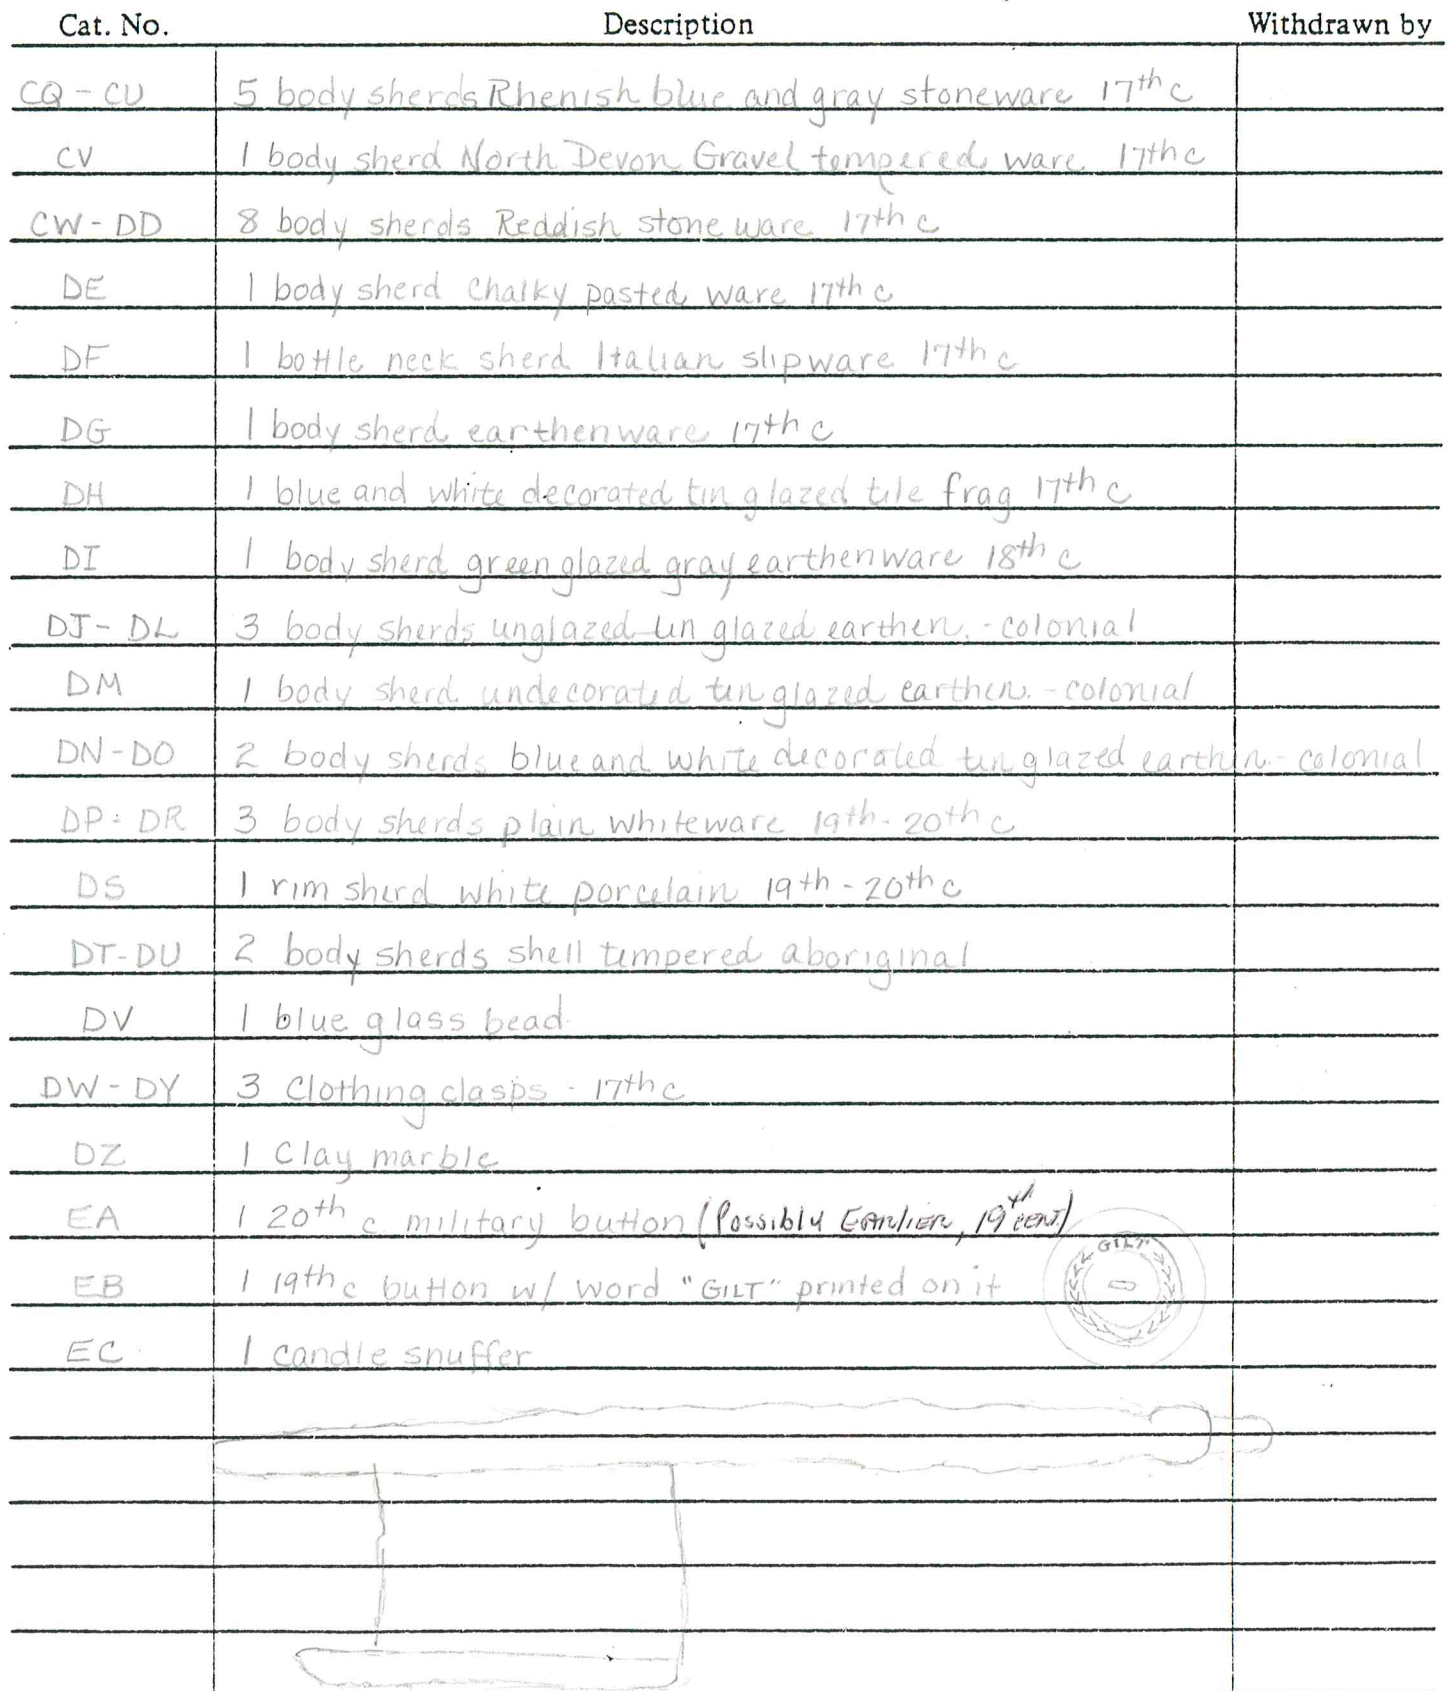 Cat. No. Description Withdrawn by
CQ - CU 5 body sherds Rhenish blue and gray stoneware 17th c
CV 1 body sherd North Devon Gravel tempered ware 17th c
CW - DD 8 body sherds Reddish stone ware 17th c
DE 1 body sherd Chalky pasted ware 17th c
DF 1 bottle neck sherd Italian slipware 17th c
DG 1 body sherd earthenware 17th c
DH 1 blue and white decorated tin glazed tile frag 17th c
DI 1 body sherd green glazed gray earthenware 18th c
DJ - DL 3 body sherds unglazed tin glazed earthen. - colonial
DM 1 body sherd undecorated tin glazed earthen. - colonial
DN - DO 2 body sherds blue and white decorated tin glazed earthen. - colonial
DP - DR 3 body sherds plain whiteware 19th - 20th c
DS 1 rim sherd white porcelain 19th - 20th c
DT - DU 2 body sherds shell tempered aboriginal
DV 1 blue glass bead
DW - DY 3 Clothing clasps - 17th c
DZ 1 Clay marble
EA 1 20th c military button (Possibly EARLIER, 19th CENT.)
EB 1 19th c button w/ word "GILT" printed on it
GILT
EC 1 candle snuffer